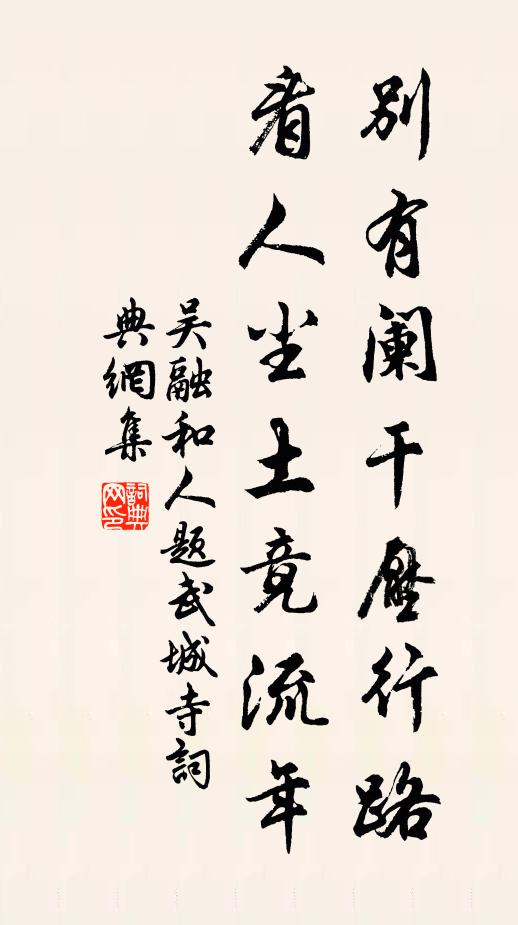 别有阑干压行路
看人尘土竟流年
吴融和人题武城寺词
典網集
詞典
网印